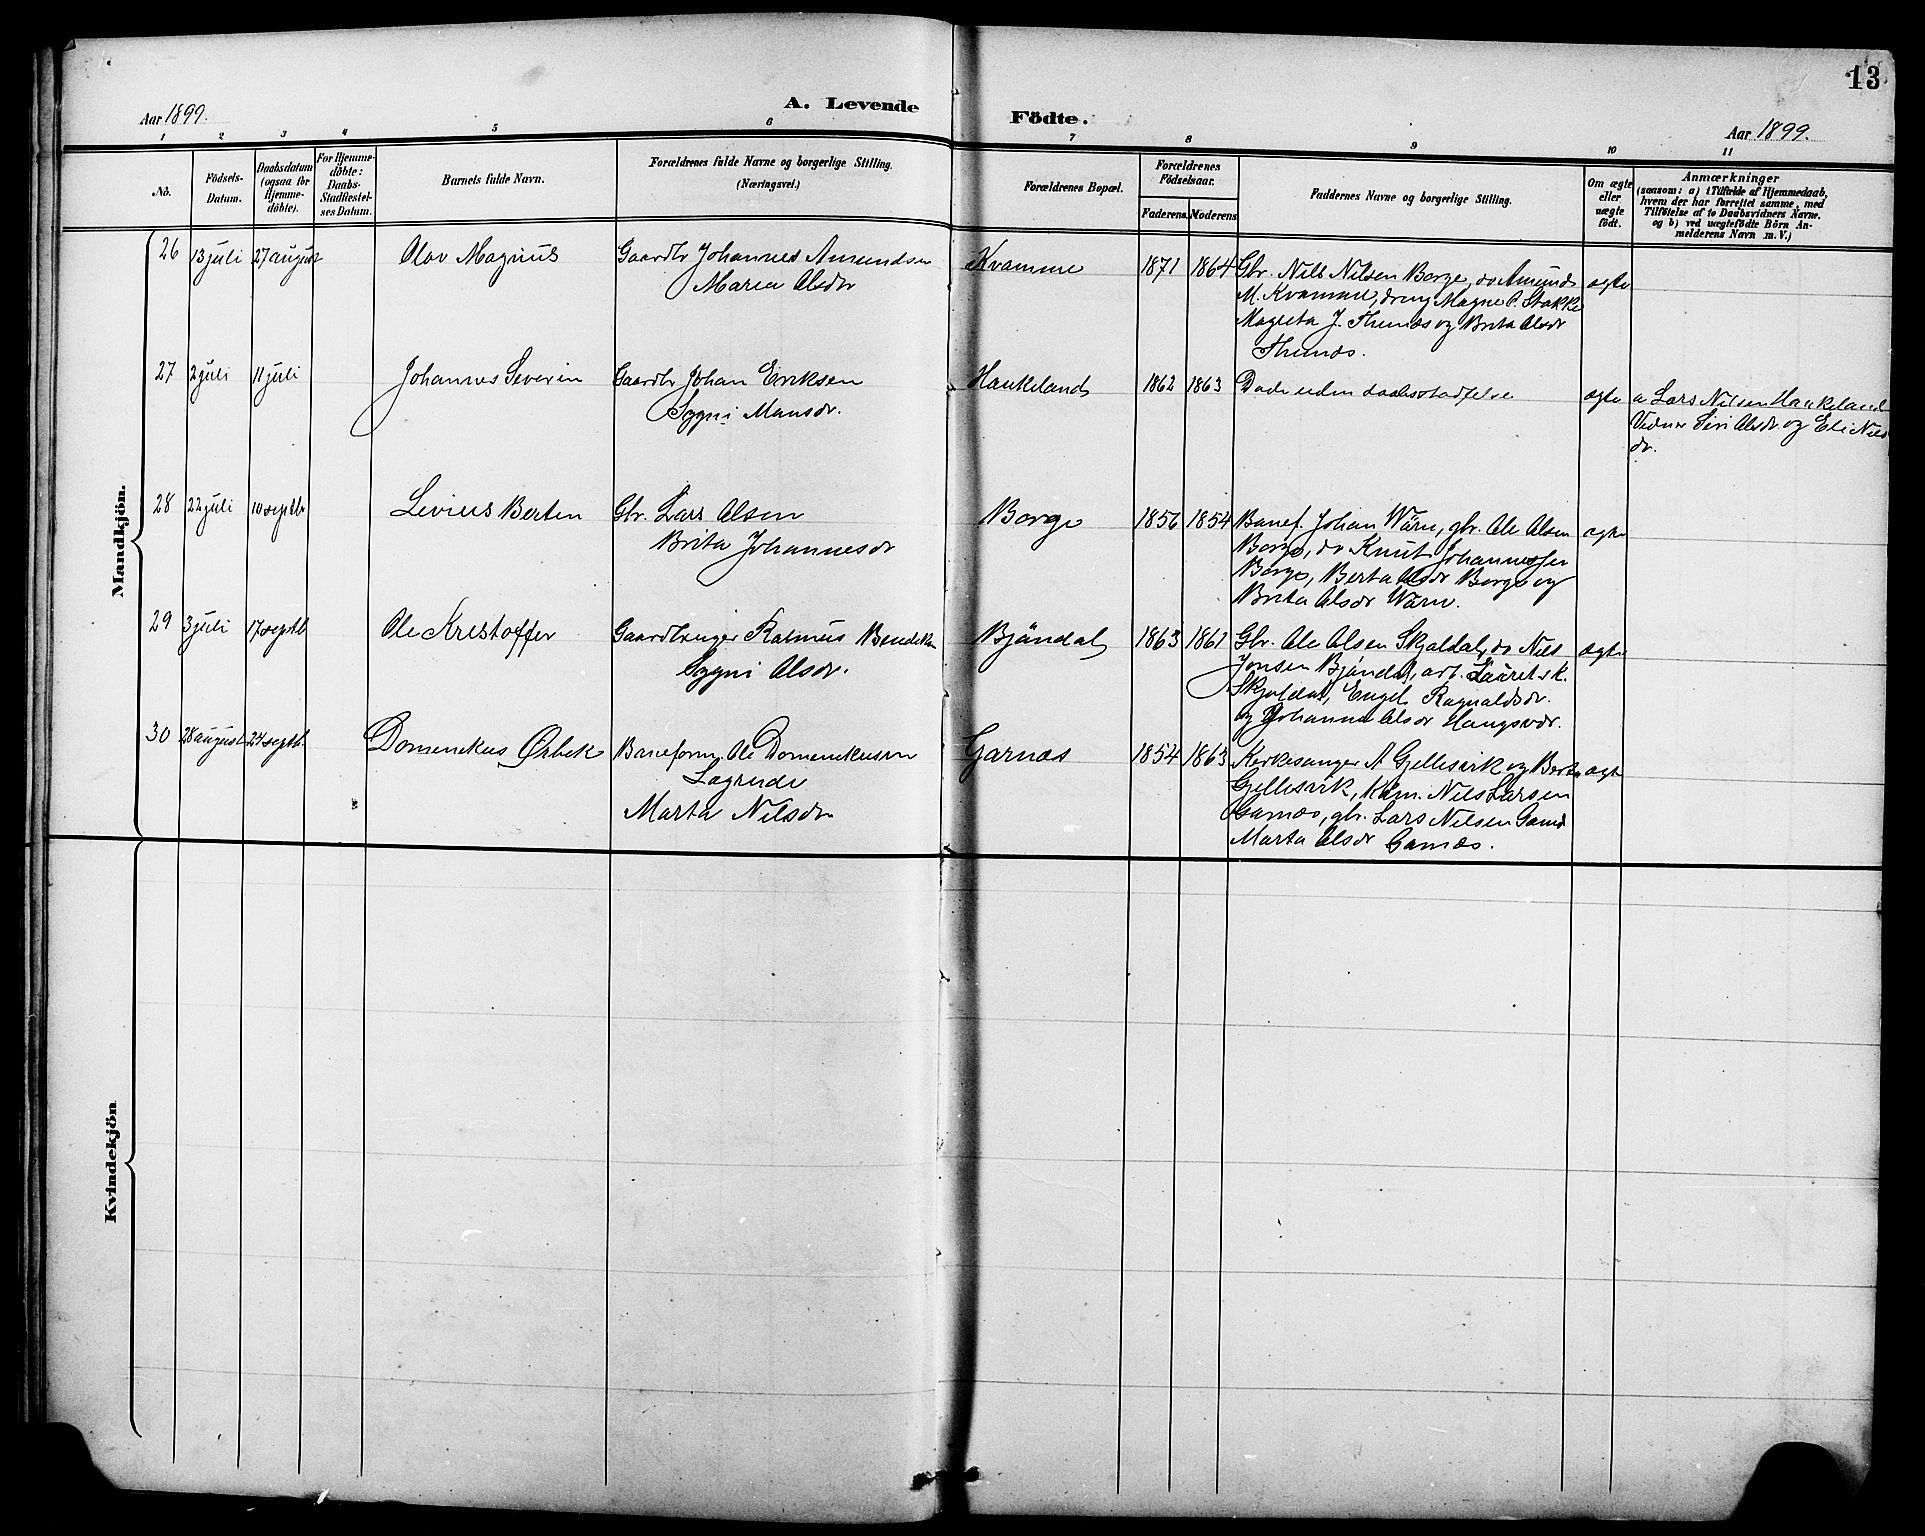 13
Aar 1899.
A. Levende
Födte.
Aar 1899.
1 2 3 4 5 6 7 8 9 10 11
No.
Födsels-
Datum.
Daabsdatum
(ogsaa for
Hjemme-
döbte).
For Hjemme-
döbte:
Daabs-
Stadfæstel-
ses Datum.
Barnets fulde Navn.
Forældrenes fulde Navne og borgerlige Stilling.
(Næringsvei.)
Forældrenes Bopæl.
Forældrenes
Födselsaar.
Faderens. Moderens
Faddernes Navne og borgerlige Stilling.
Om ægte
eller
uægte
födt.
Anmærkninger
(saasom: a) i Tilfælde af Hjemmedaab,
hvem der har forrettet samme, med
Tilföielse af to Daabsvidners Navne.
og b) ved uægtefödte Börn An-
melderens Navn m. V.)
Mandkjön.
26 13 juli 27 august Olav Magnus Gaardbr Johannes Amundsen Kvamme 1871 1864 Gbr. Nils Nilsen Borge, do Amund ægte
Maria Olsdr
M. Kvamme, dreng Magne P. Stokke
Magreta J. Thunæs og Brita Olsdr
Thunæs.
27 2 juli 11 juli Johannes Severin Gaardbr Johan Eriksen Haukeland 1862 1863 Døde uden daabsstadfelse ægte a Lars Nilsen Haukeland
Sygni Mansdr.
Vidner Siri Olsdr og Eli Nils
dr.
28 22 juli 10 septbr Levius Berten Gbr. Lars Olsen Borge 1856 1854 Banef. Johan Wärn, gbr. Ole Olsen ægte
Brita Johannesdr
Borge, do Knut Johannessen
Borge, Berta Olsdr Borge og
Brita Olsdr Wärn.
29 3 juli 17 septb Ole Kristoffer Gaardbruger Rasmus Bendiksen Bjöndal 1863 1861 Gbr. Ole Olsen Skjoldal, do Nils ægte
Sygni Olsdr.
Jonsen Bjöndal, arb. Laurits K.
Skjoldal, Engel Ragnaldsdr.
og Johanne Olsdr Haugsvær.
30 28 august 24 septb. Domenikus Ørbek Baneform. Ole Domenikusen Garnæs 1854 1863 Kirkesanger A Gjellesvik og Berta ægte
Lægreide
Marta Nilsdr
Gjellesvik, Kam. Nils Larsen
Garnæs, gbr. Lars Nilsen Garnæs
Marta Olsdr Garnæs.
Kvindekjön